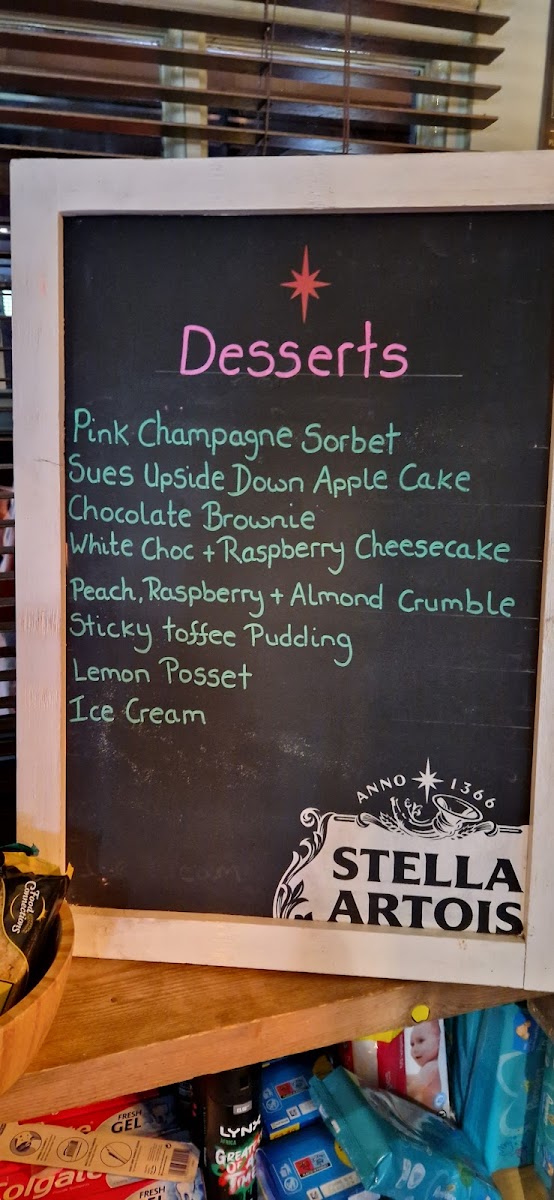 Desserts
Pink Champagne Sorbet
Sues Upside Down Apple Cake
Chocolate Brownie
White Choc + Raspberry Cheesecake
Peach, Raspberry + Almond Crumble
Sticky toffee Pudding
Lemon Posset
Ice Cream
ANNO 1366
STELLA
ARTOIS
Food
Connections
FRESH
GEL
Colgate
FRESH
LYNX
AFRICA
GREATEST
OF ALL
TIME